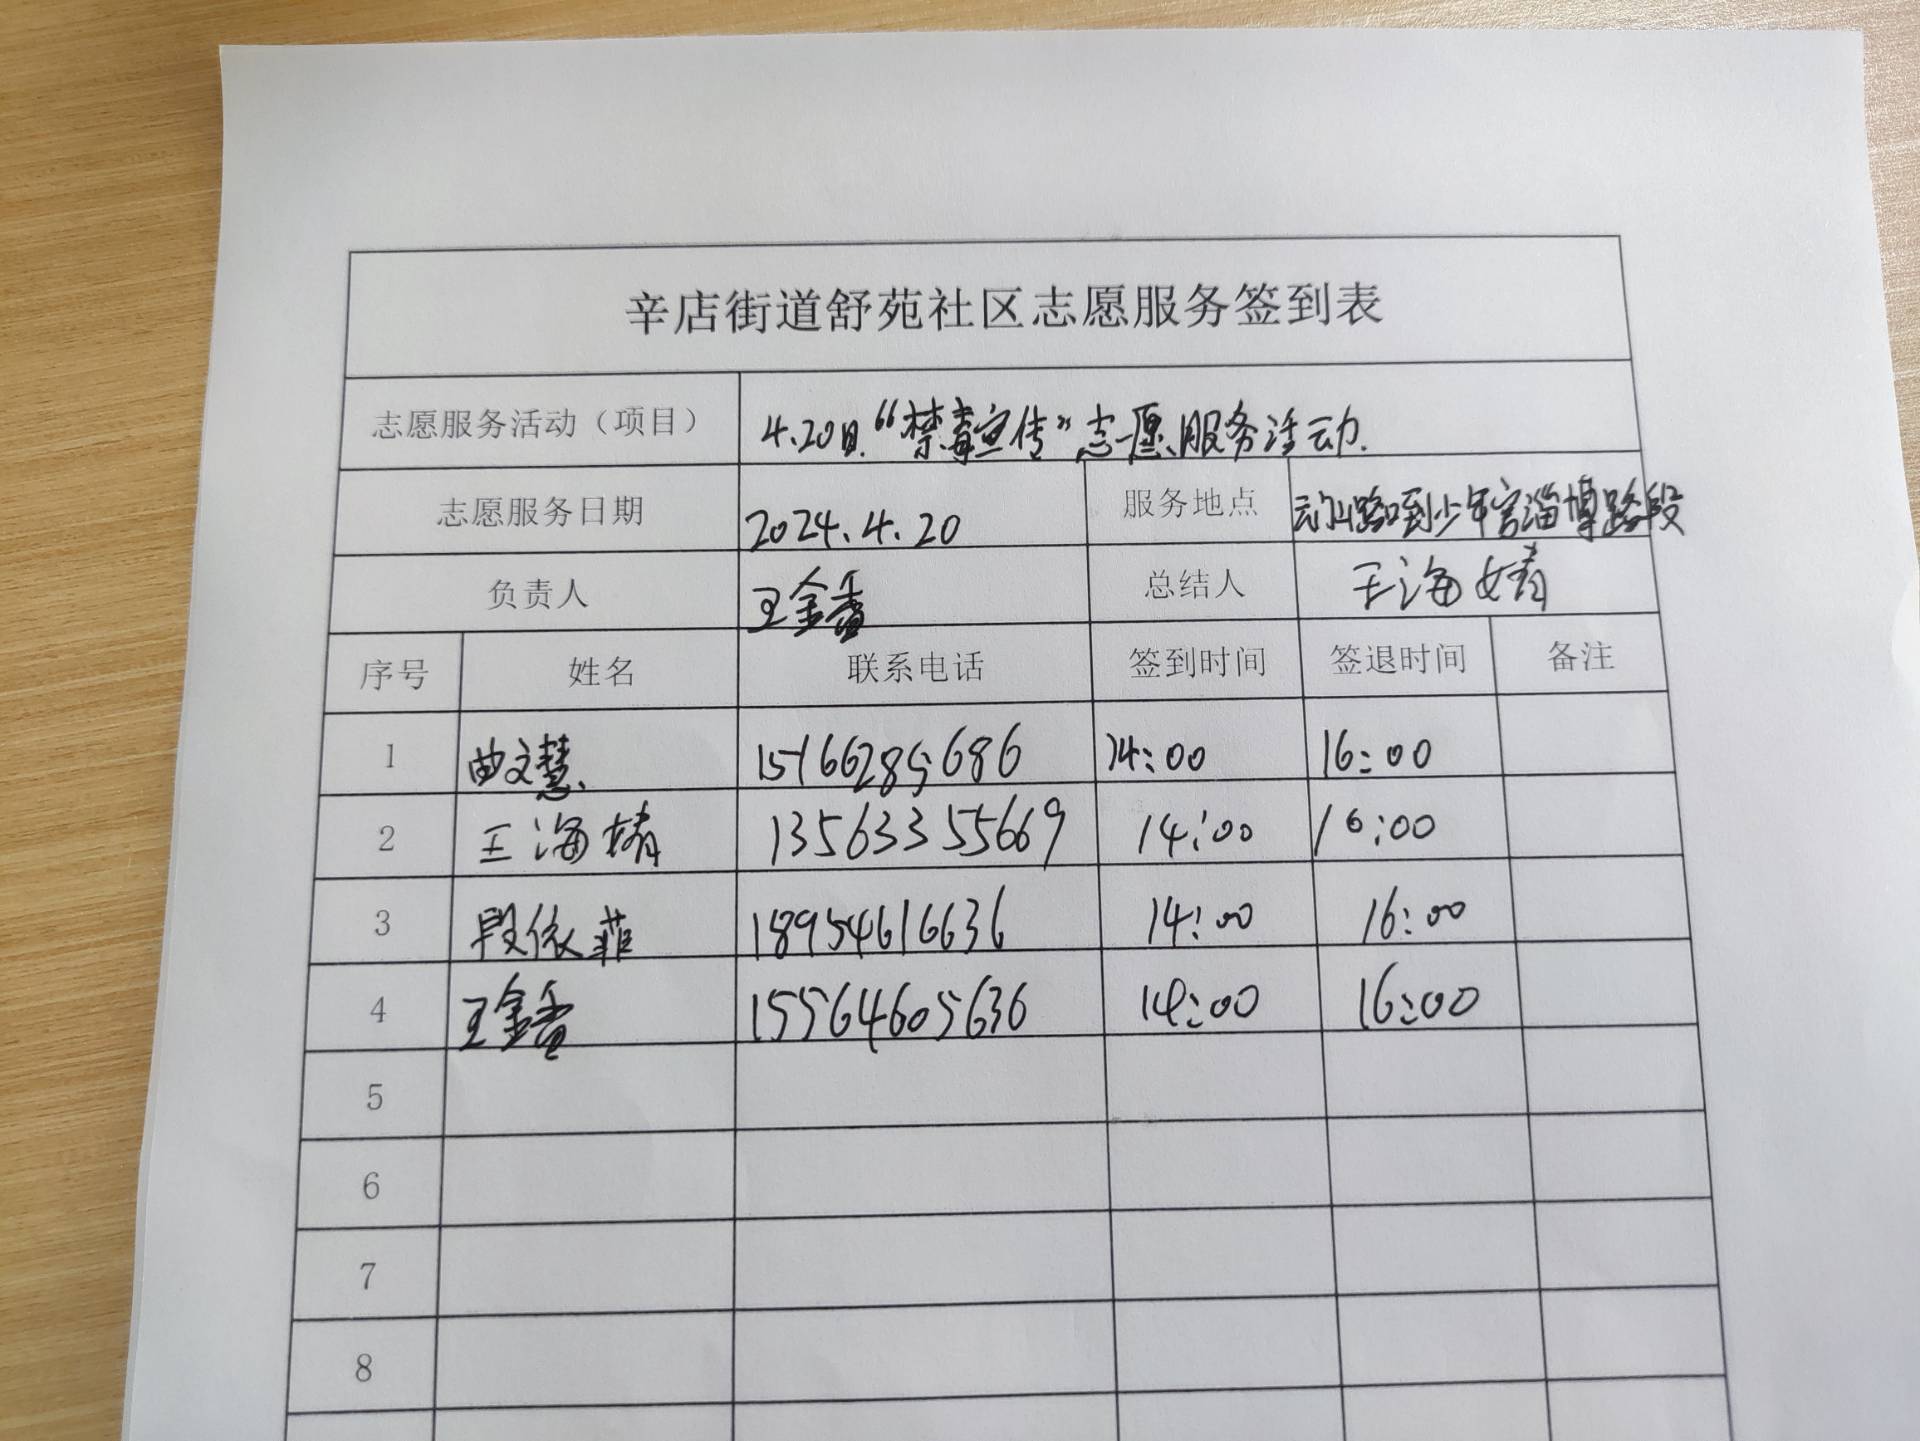 辛店街道舒苑社区志愿服务签到表
志愿服务活动（项目） 4.20日“禁毒宣传”志愿服务活动.
志愿服务日期 2024.4.20 服务地点 路口到少年宫淄博路段
负责人 王金香 总结人 王海婧
序号 姓名 联系电话 签到时间 签退时间 备注
1 曲文慧 15166285686 14:00 16:00
2 王海婧 13563355669 14:00 16:00
3 段依菲 18954616636 14:00 16:00
4 王金香 15564605636 14:00 16:00
5
6
7
8